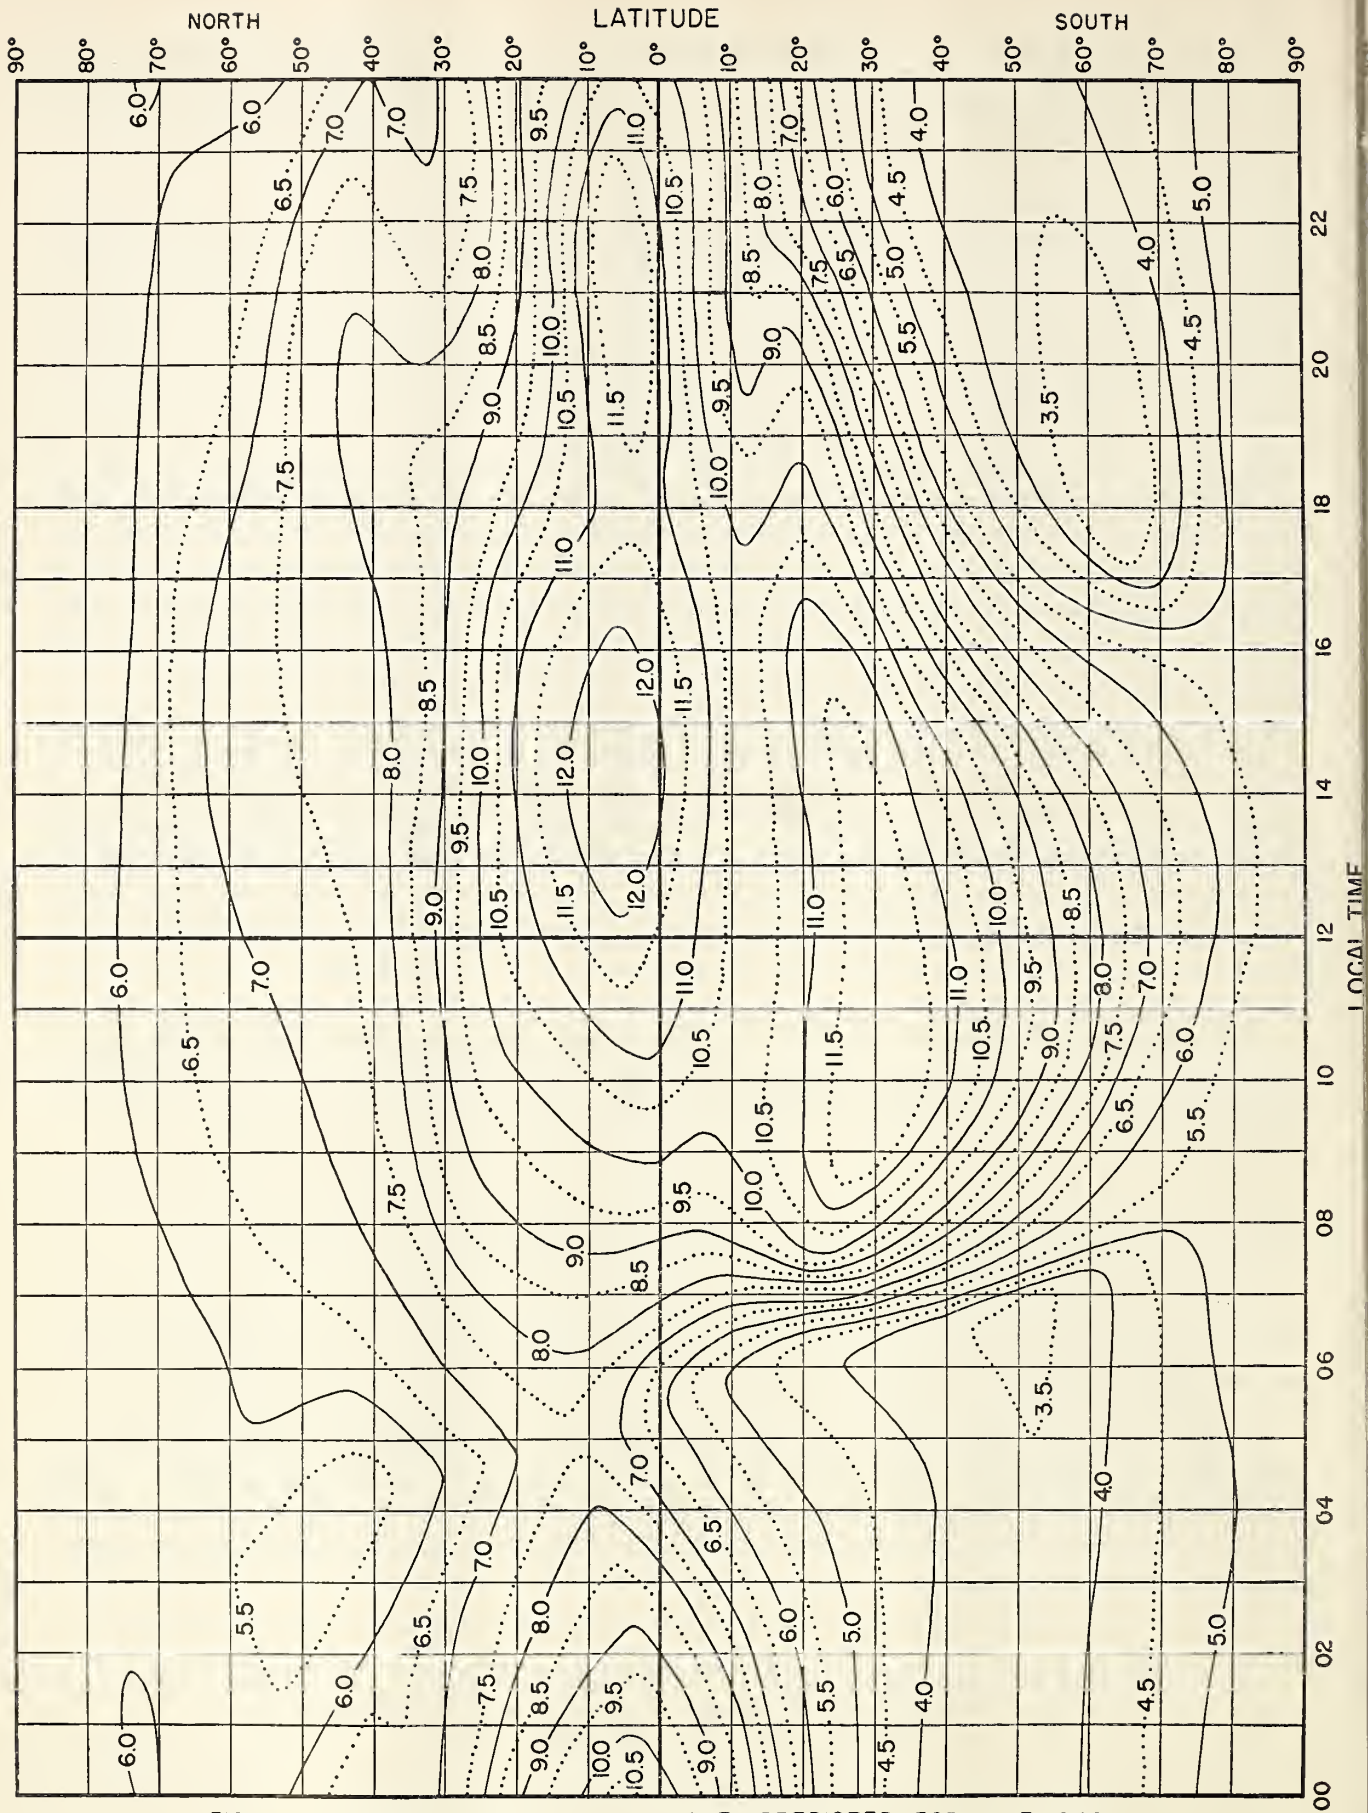 NORTH LATITUDE SOUTH
90° 80° 70° 60° 50° 40° 30° 20° 10° 0° 10° 20° 30° 40° 50° 60° 70° 80° 90°
6.0 6.0 7.0 7.0 9.5 11.0 7.0 4.0
6.5 7.5 10.5 8.0 6.0 4.5 5.0
8.0 8.5 7.5 6.5 5.0 4.0
8.5 10.0 9.0 5.5 4.5
9.0 10.5 11.5 9.5 3.5
7.5 10.0
11.0
8.5 12.0 11.5
8.0 10.0 12.0
9.5
9.0 10.5 11.5 12.0 11.0 10.0 8.5
6.0 7.0 11.0 11.0 9.5 8.0 7.0
6.5 10.5 11.5 10.5 9.0 7.5 6.0
10.5 6.5 5.5
7.5 9.5 10.0
9.0 8.5
8.0
3.5
7.0 4.0
7.0 6.5
5.5 6.5 8.0 6.0 5.0 5.0
6.0 7.5 8.5 9.5 5.5 4.0 4.5
6.0 9.0 10.0 10.5 9.0 4.5
00 02 04 06 08 10 12 14 16 18 20 22
LOCAL TIME